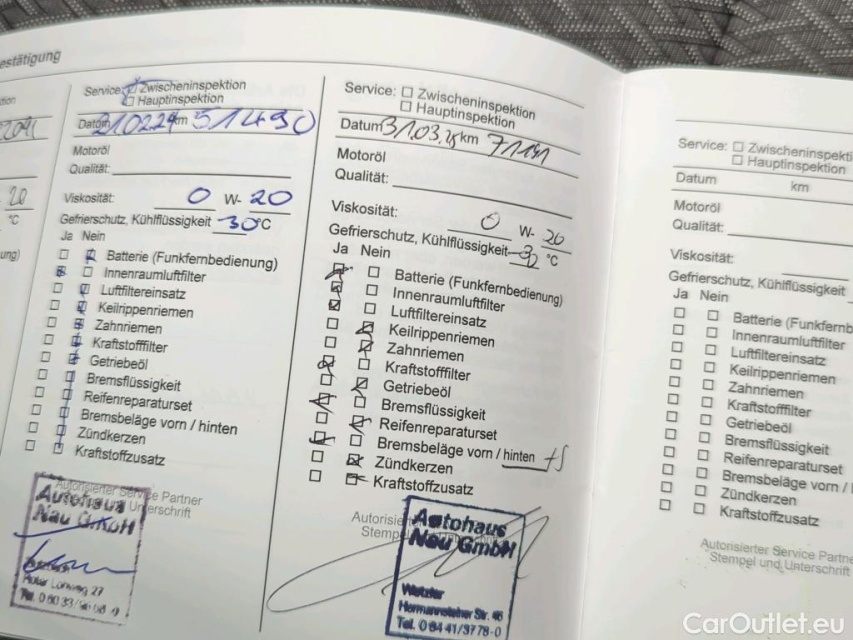 estätigung
20
°C
ung)
Service: Zwischeninspektion
Hauptinspektion
Datum km 51490
Motoröl
Qualität:
Viskosität: 0 W- 20
Gefrierschutz, Kühlflüssigkeit -30°C
Ja Nein
Batterie (Funkfernbedienung)
Innenraumluftfilter
Luftfiltereinsatz
Keilrippenriemen
Zahnriemen
Kraftstofffilter
Getriebeöl
Bremsflüssigkeit
Reifenreparaturset
Bremsbeläge vorn / hinten
Zündkerzen
Kraftstoffzusatz
Autorisierter Service Partner
Stempel und Unterschrift
Autohaus
Nau GmbH
Service: Zwischeninspektion
Hauptinspektion
Datum 31.03. km
Motoröl
Qualität:
Viskosität: 0 W- 20
Gefrierschutz, Kühlflüssigkeit -32 °C
Ja Nein
Batterie (Funkfernbedienung)
Innenraumluftfilter
Luftfiltereinsatz
Keilrippenriemen
Zahnriemen
Kraftstofffilter
Getriebeöl
Bremsflüssigkeit
Reifenreparaturset
Bremsbeläge vorn / hinten
Zündkerzen
Kraftstoffzusatz
Autorisie
Stempel
Autohaus
Nau GmbH
Wetzlar
Hermannsteiner Str. 46
Tel. 0 64 41/3778-0
Service: Zwischeninspekti
Hauptinspektion
Datum km
Motoröl
Qualität:
Viskosität:
Gefrierschutz, Kühlflüssigkeit
Ja Nein
Batterie (Funkfernb
Innenraumluftfilter
Luftfiltereinsatz
Keilrippenriemen
Zahnriemen
Kraftstofffilter
Getriebeöl
Bremsflüssigkeit
Reifenreparaturset
Bremsbeläge vorn /
Zündkerzen
Kraftstoffzusatz
Autorisierter Service Partne
Stempel und Unterschrift
CarOutlet.eu